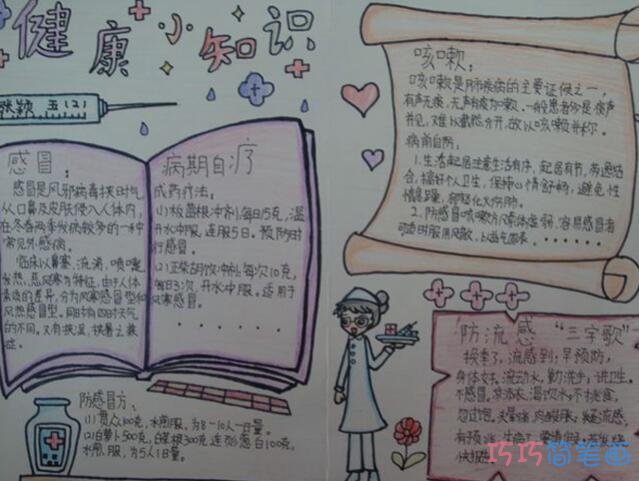 健康小知识
张颖 五(2)
感冒:
感冒是风邪病毒挟时气
从口鼻及皮肤侵入人体内,
在冬春两季发病较多的一种
常见外感病。
临床以鼻塞,流涕,喷嚏
发热,恶风寒为特征,由于人体
素质的差异,分为风寒感冒型和
风热感冒型。同时有四时天气
的不同,又有挟湿,挟暑之兼
证。
病期自疗
成药疗法:
(1)板蓝根冲剂,每日15克,温
开水冲服,连服5日。预防时
行感冒。
(2)正柴胡饮冲剂,每次10克,
每日3次,开水冲服。适用于
风寒感冒。
防感冒方:
(1)贯众100克,水煎服,为8-10人一日量。
(2)白萝卜500克,白菜根300克,连须葱白100克,
水煎,服,为5人1日量。
咳嗽:
咳嗽是肺疾病的主要证候之一,
有声无痰,无声有痰为嗽。一般患者多是痰声
并见,难以截然分开,故以咳嗽并称。
病前自防:
1.生活起居注意生活有序,起居有节,劳逸结
合,搞好个人卫生,保持心情舒畅,避免性
2.防感冒咳嗽
容易感冒者
防流感“三字歌”
换季了,流感到;早预防,
身体好。流动水,勤洗手;讲卫生,
不感冒。
不挑食,
巧巧简笔画